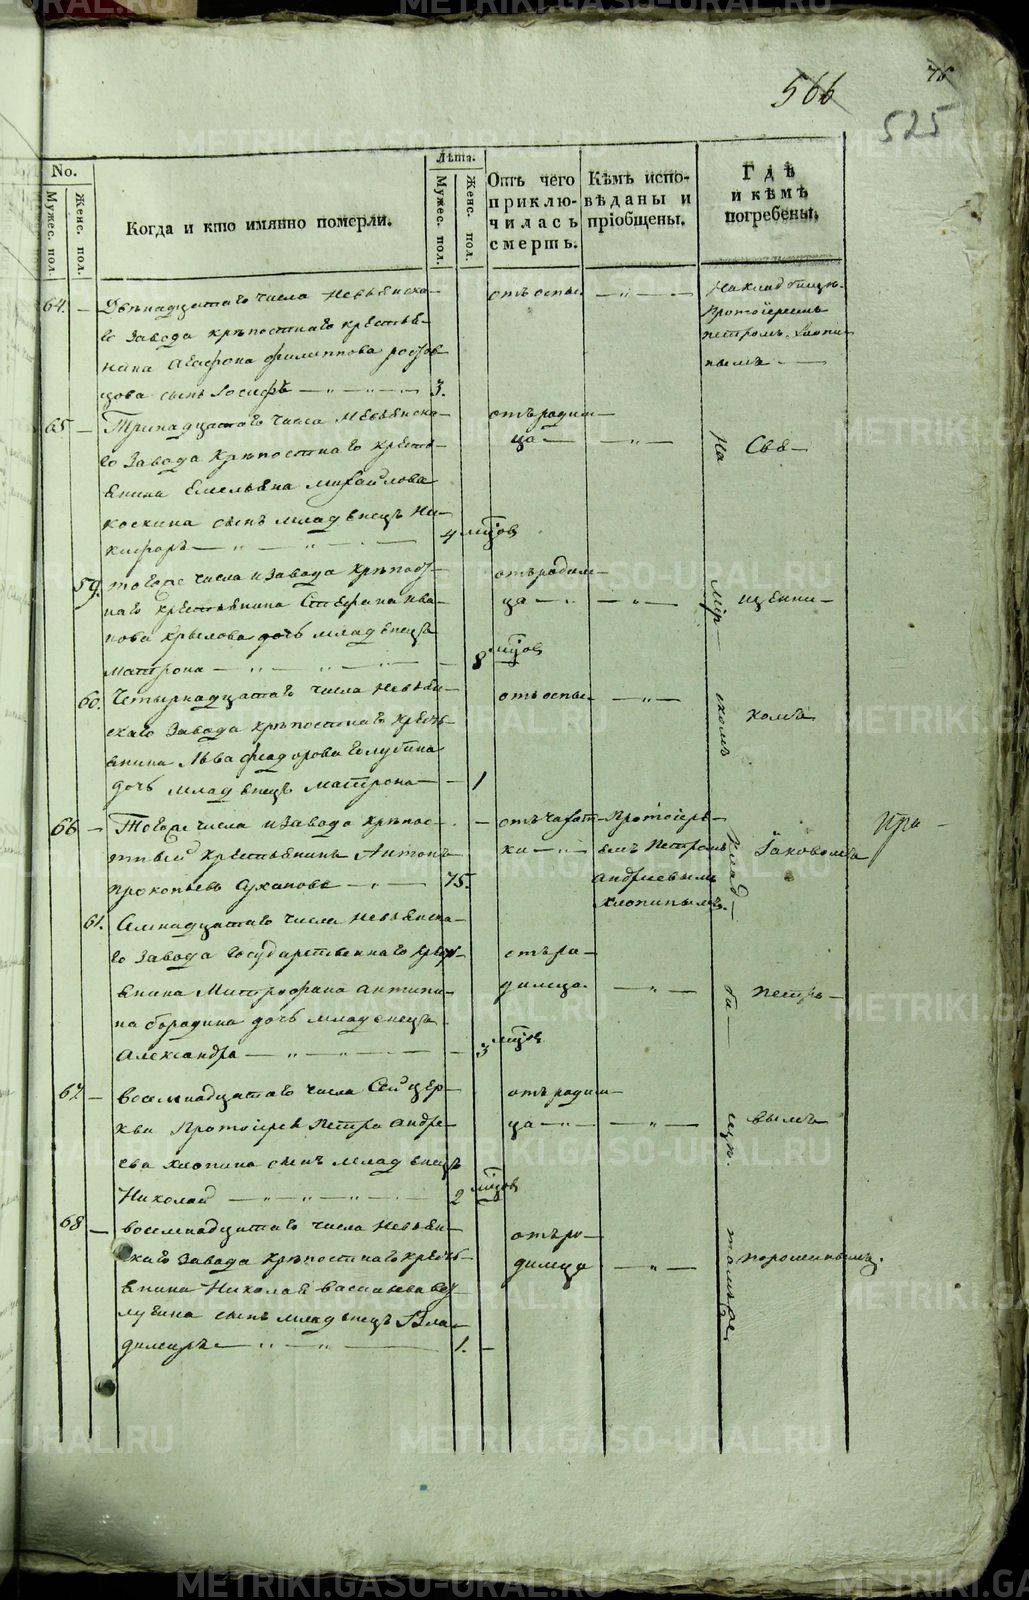 566
525
No.
Мужес. пол.
Женс. пол.
Когда и кто имянно померли.
Лѣта.
Мужес. пол.
Женс. пол.
Отъ чего приклю-
чилась смерть.
Кѣмъ испо-
вѣданы и
прiобщены.
Гдѣ
и кѣмъ
погребены.
64. Двѣнадцатаго числа Невьянска-
го Завода крѣпостнаго крестья-
нина Агафона Филиппова
сынъ Iосифъ 3.
отъ оспы
На кладбищѣ
Протоiереемъ
Петромъ Хлопи-
нымъ
65 Тринадцатаго числа Невьянска-
го Завода крѣпостнаго кресть-
янина Емельяна Михайлова
коскина сынъ младенецъ Ни-
кифоръ 4 мцовъ
отъ родим-
ца
59. того же числа и Завода крѣпост-
наго крестьянина Стефана Ива-
нова Крылова дочь младенецъ
Матрона 8 мцовъ
отъ родим-
ца
60. Четырнадцатаго числа Невьян-
скаго Завода крѣпостнаго кресть-
янина Льва Феодорова Голубина
дочь младенецъ Матрона 1
отъ оспы
66 Того же числа и Завода крѣпос-
тный крестьянинъ Антонъ
Прокопьевъ Сухановъ 75.
отъ чахот-
ки
Протоiере-
емъ Петромъ
Андреевымъ
Хлопинымъ.
61. Семнадцатаго числа Невьянска-
го Завода государственнаго крест-
янина Митрофана Антипи-
на бородина дочь младенецъ
Александра 3 мцовъ
отъ ро-
димца
67 восемнадцатаго числа Сей цер-
кви Протоiерея Петра Андре-
ева Хлопина сынъ младенецъ
Николай 2 мцовъ
отъ родим-
ца
68 восемнадцатаго числа Невьян-
скаго Завода крѣпостнаго кресть-
янина Николая Васильева
сынъ младенецъ Вла-
димиръ 1.
отъ ро-
димца
На
мiр-
скомъ
клад-
би-
щѣ.
томъ же
Свя-
щенни-
комъ
Iаковомъ
Петро-
вымъ
Пономаревымъ.
METRIKI.GASO-URAL.RU